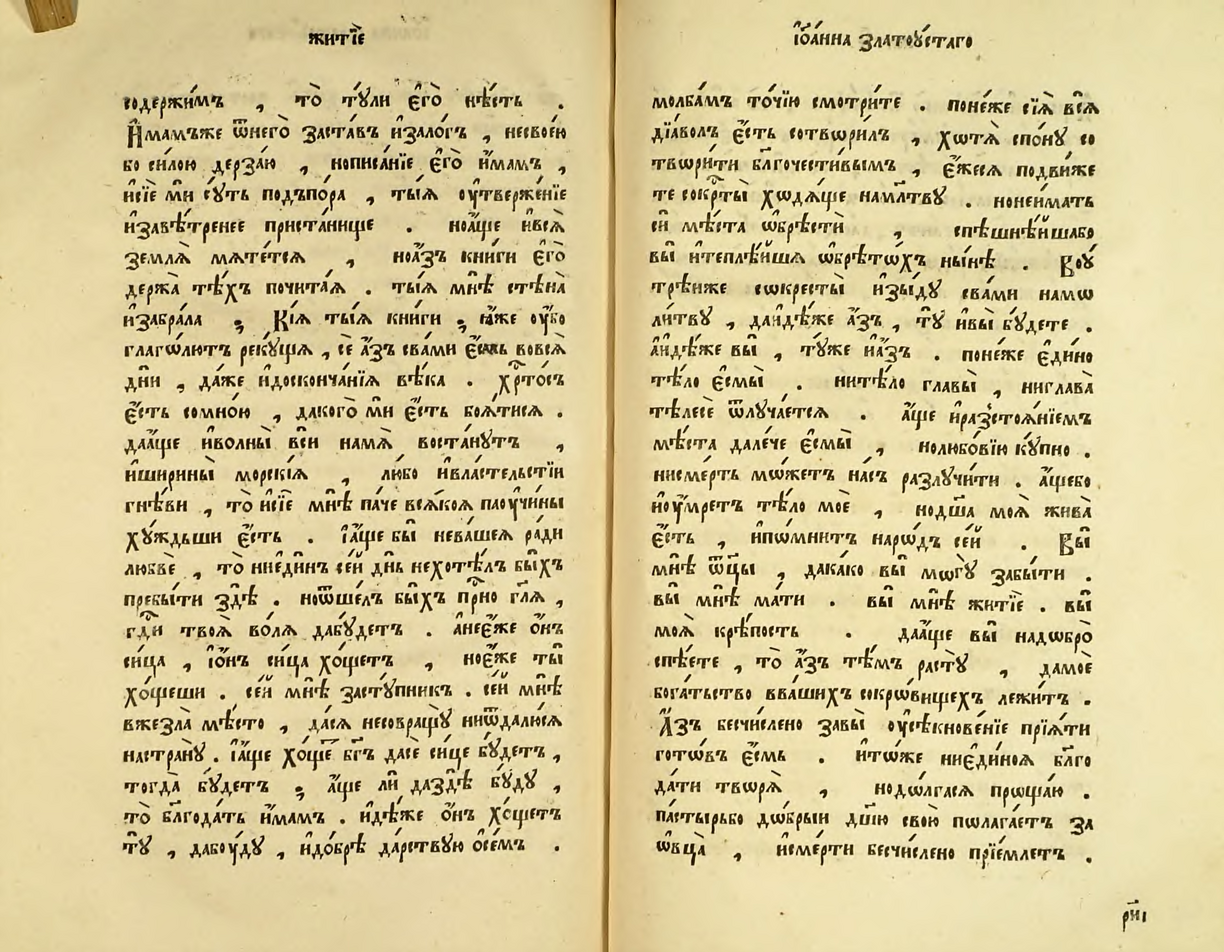 житїе
содержимъ , то тꙋли є҆го̀ нѣ́сть .
И҆́мамъже ѿнего̀ заста́въ иѕало́гъ , несвое́ю
бо си́лою держа́ю , нописа́нїе є҆го̀ и҆́мамъ ,
исїе́ ми сꙋ́ть подъпо́ра , ты́ѧ ᲂу҆твержє́нїе
иѕавѣ́тренее приста́нище . ноа҆́ще и҆всѧ̀
землѧ̀ мѧте́тсѧ , ноа҆́зъ книги є҆го̀
держа̀ тѣ́хъ почита́ѧ . ты́ѧ мнѣ̀ стѣна̀
иѕабра́ла ; Кі́ѧ ты́ѧ книги ; ꙗ҆́же ᲂу҆́бо
глаго́лютъ рекꙋ́щѧ , се а҆́зъ сва́ми є҆́смь вовсѧ̀
дни̑ , да́же идосконча́нїѧ вѣ́ка . хрⷭ҇то́съ
є҆́сть сомно́ю , дакого̀ ми є҆́сть боѧ́тисѧ .
даа҆́ще иволны̀ всѝ намѧ̀ воста́нꙋтъ ,
ишири́ны морскі́ѧ , лю́бо ивла́стельстїи
гнѣ́ви , то исїе́ мнѣ̀ па́че всѧ́коѧ паоу́чины
хꙋ́ждьши є҆́сть . І҆а҆́ще бы̀ нева́шеѧ ра́ди
любвѐ , то ниеди́нъ се́й дн҃ь нехотѣ́лъ бы́хъ
пребы́ти здѣ̀ . ноѿше́лъ бы́хъ прⷭ҇но гл҃ѧ ,
гдⷭ҇и твоѧ̀ во́лѧ дабꙋ́детъ . а҆неє҆́же ѻ҆́нъ
си́ца , і҆о҆́нъ си́ца хо́щетъ , ноє҆́же ты̀
хо́щеши . се́й мнѣ̀ застꙋ́пникъ . се́й мнѣ̀
вжезла̀ мѣ́сто , да́сѧ несовращꙋ̀ ниѿда́лисѧ
настра́нꙋ . І҆а҆́ще хо́ще бг҃ъ дасѐ си́це бꙋ́детъ ,
тогда̀ бꙋ́детъ ; а҆́ще ли даздѣ̀ бꙋ́дꙋ ,
то бл҃года́ть и҆́мамъ . идѣ́же ѻ҆́нъ хо́щетъ
тꙋ̀ , дабоу́дꙋ , идо́брѣ да́рствꙋю ѻ҆се́мъ .
і҆ѡа́нна златоꙋ́стаго
молба́мъ то́чїю смотри́те . поне́же сїѧ̀ всѧ̀
дїа́волъ є҆́сть сотвори́лъ , хотѧ̀ спо́нꙋ со
твори́ти бл҃гочести́вымъ , є҆́жесѧ подви́же
те сокрⷭ҇ты̀ ходѧ́ще намл҃твꙋ . нонеи́мать
сѝ мѣ́ста ѡ҆брѣстѝ , спѣшнѣ́йшабо
вы̀ итеплѣ́йшѧ ѡ҆брѣто́хъ ны́нѣ . Воꙋ́
трѣ́иже сѡкресты̀ иѕы́дꙋ сва́ми намо
ли́твꙋ , даидѣ́же а҆́зъ , тꙋ̀ ивы̀ бꙋ́дете .
а҆идѣ́же вы̀ , тꙋ́же иа҆́зъ . поне́же є҆ди́но
тѣ́ло є҆смы̀ . нитѣ́ло главы̀ , ниглава̀
тѣлесѐ ѿлꙋча́етсѧ . а҆́ще иразстоѧ́нїемъ
мѣ́ста дале́че є҆смы̀ , нолюбо́вїю кꙋ́пно .
нисме́рть мо́жетъ на́съ разлꙋчи́ти . а҆́щебо
ноу́мретъ тѣ́ло моѐ , нодш҃а̀ моѧ̀ жива̀
є҆́сть , ипо́мнитъ наро́дъ се́й . Вы̀
мнѣ̀ ѿцы̀ , дака́ко вы̀ могꙋ̀ забы́ти .
вы̀ мнѣ̀ ма́ти . вы̀ мнѣ̀ житїѐ . вы̀
моѧ̀ крѣ́пость . даа҆́ще вы̀ надо́бро
спѣ́ете , то а҆́зъ тѣ́мъ растꙋ̀ , дамоѐ
бога́тьство вва́шихъ сокро́вищехъ лежи́тъ .
А҆́зъ бесчи́слено завы̀ ᲂу҆сѣкнове́нїе прїѧ́ти
гото́въ є҆́смь . ито́же ниеди́ноѧ бл҃го
да́ти творѧ̀ , нодо́лгасѧ проща́ю .
па́стырьбо до́брыи дш҃ю свою̀ полага́етъ за
ѻ҆вца̀ , исме́рти бесчи́слено прїе́млетъ .
рн҃і